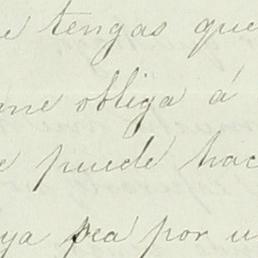 e tengas que
me obliga á
e puede hac
ya sea por u